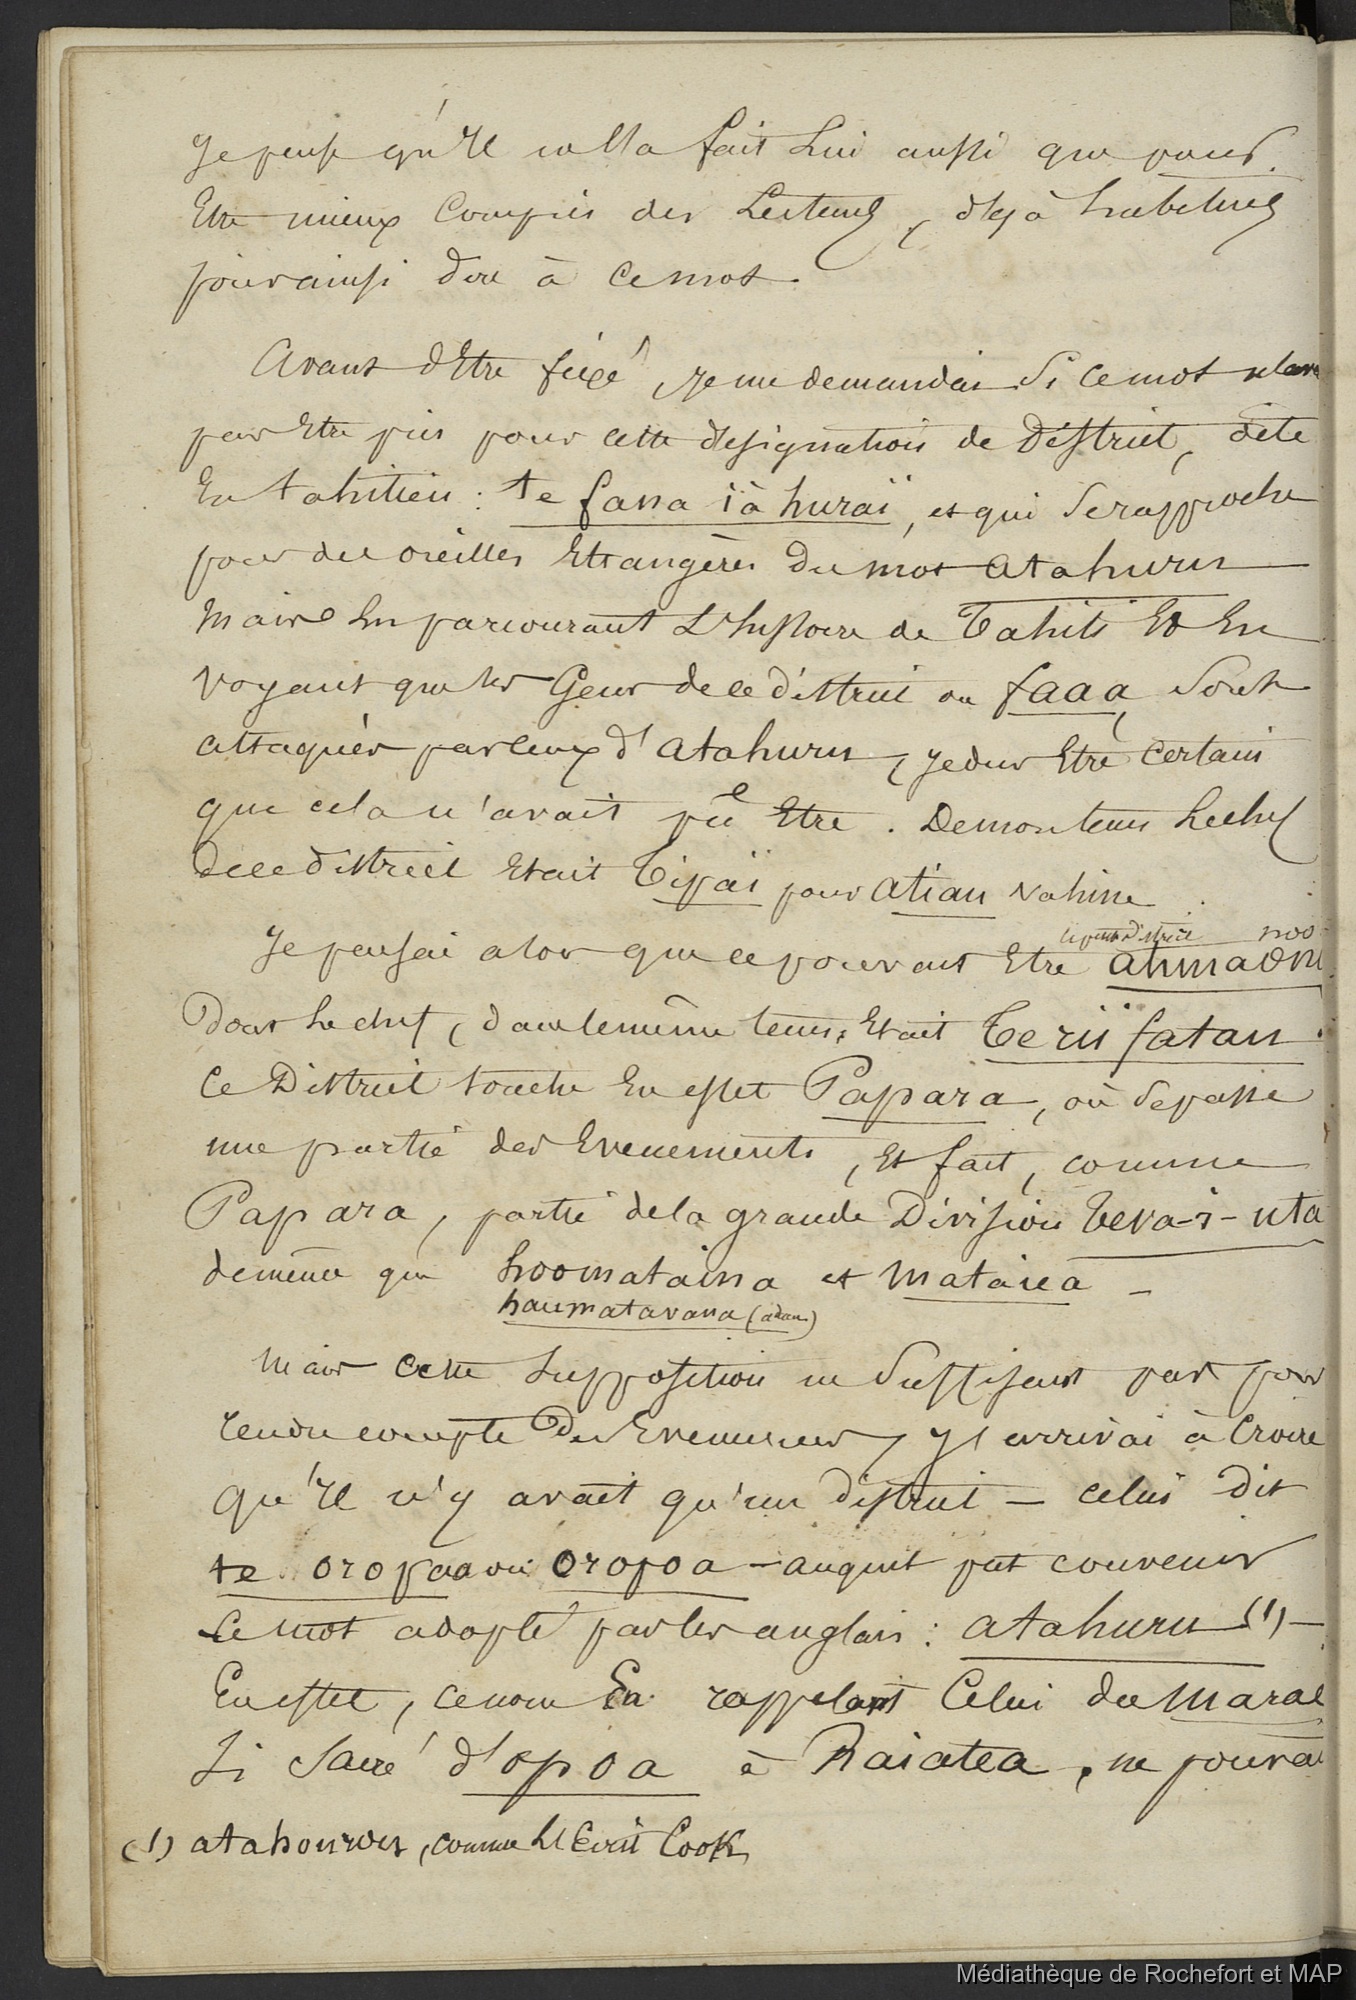 Je pense qu'Il ne l'a fait Lui aussi que pour
Etre mieux Compris des Lecteurs, déjà habitués
pour ainsi dire à ce mot.
Avant d'Etre fixé, je me demandai Si ce mot
pas Etre pris pour cette designation de District, dite
En tahitien : te fana ïà huraï, et qui Se rapproche
pour des oreilles Etrangères du mot atahuru
Mais En parcourant L'histoire de Tahiti Et En
Voyant que les Gens de ce district ou faaa, Sont
attaqués par ceux d'atahuru, je dus Etre Certain
que cela n'avait pû Etre. De mon tems Le chef
de ce district Etait Tipaï pour atiau vahine.
le petit district
Je pensai alors que ce pouvait Etre
Dont Le chef, dans le même tems, Etait Teriï fatau.
Ce District touche En effet Papara, où Se passe
une partie des Evenements, Et fait, comme
Papara, partie de la grande Division Teva-i-uta
de même que hoomataina et Mataiea -
haumatavana
Mais Cette Supposition ne Suffisant pas pour
rendre compte Des Evenemens, J'arrivai à Croire
Qu'Il n'y avait qu'un district - celui Dit
te oropaa ou Oropoa - auquel pût convenir
Le mot adopté par les anglais : atahuru (1) -
En effet, ce nom En rappelant Celui du Marae
Si Sacré d'opoa à Raiatea, ne pouvai
(1) atahourou, comme L'Ecrit Cook
Médiathèque de Rochefort et MAP